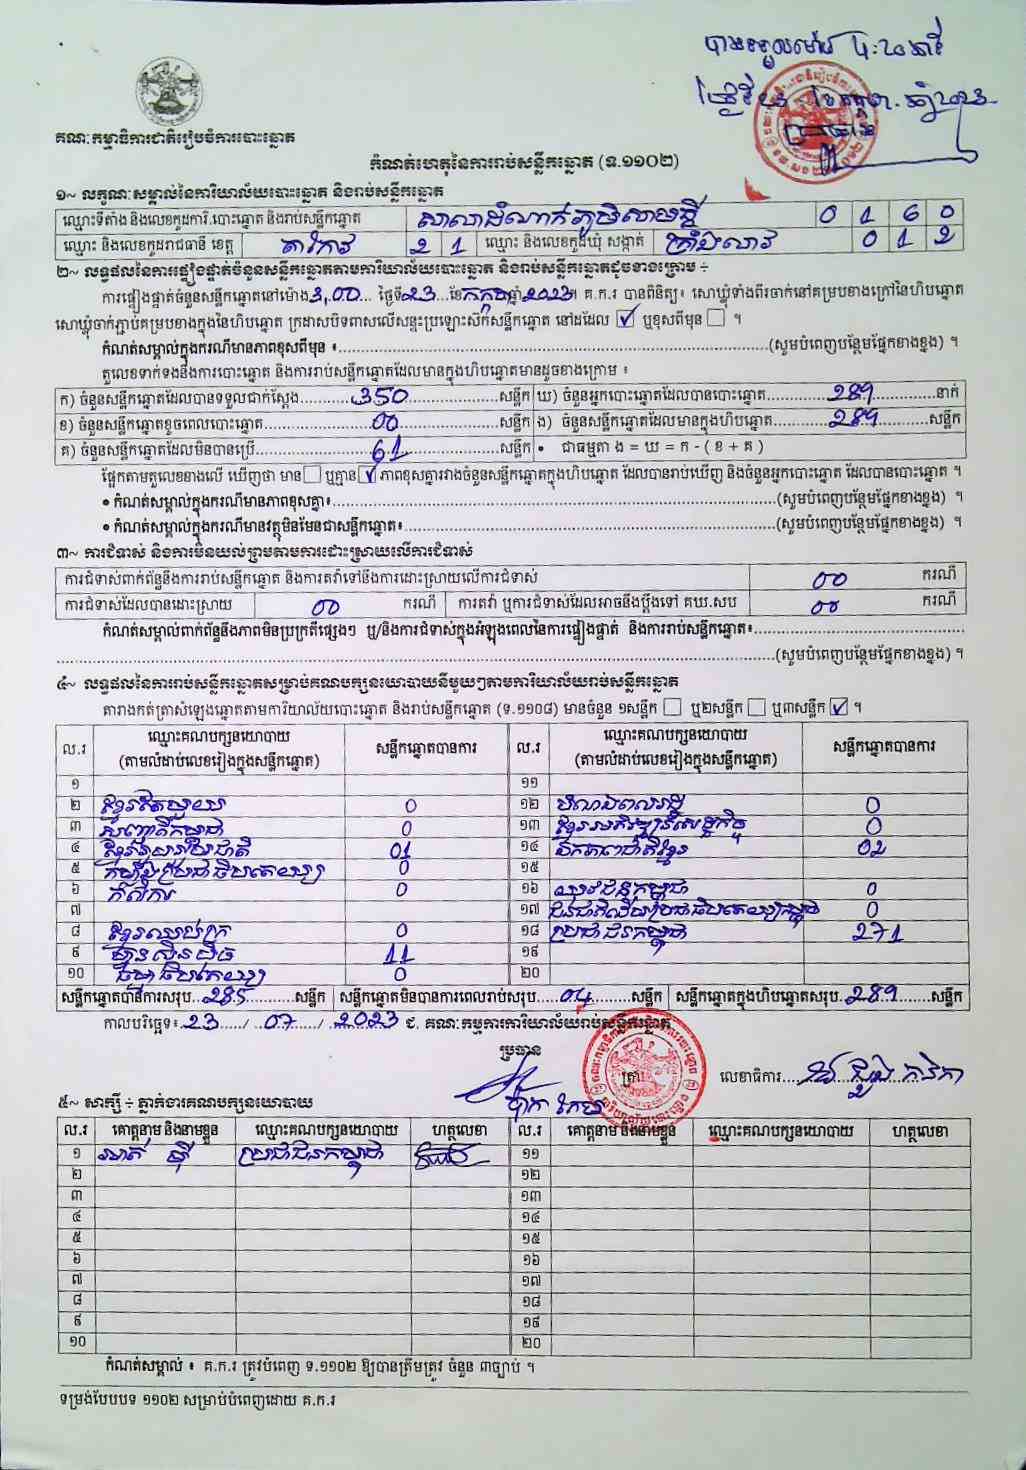 បានទទួលម៉ោង ៤:២០នាទី
ថ្ងៃទី២៣ ខែកក្កដា ឆ្នាំ២០២៣
គណៈកម្មាធិការជាតិរៀបចំការបោះឆ្នោត
កំណត់ហេតុនៃការរាប់សន្លឹកឆ្នោត (ទ.១១០២)
១~ លក្ខណៈសម្គាល់នៃការិយាល័យបោះឆ្នោត និងរាប់សន្លឹកឆ្នោត
ឈ្មោះទីតាំង និងលេខកូដការិ.បោះឆ្នោត និងរាប់សន្លឹកឆ្នោត សាលាដំណាក់ភូមិសាមគ្គី 0 1 6 0
ឈ្មោះ និងលេខកូដរាជធានី ខេត្ត តាកែវ 2 1 ឈ្មោះ និងលេខកូដឃុំ សង្កាត់ ក្រាំងលាវ 0 1 2
២~ លទ្ធផលនៃការផ្ទៀងផ្ទាត់ចំនួនសន្លឹកឆ្នោតតាមការិយាល័យបោះឆ្នោត និងរាប់សន្លឹកឆ្នោតដូចខាងក្រោម ÷
ការផ្ទៀងផ្ទាត់ចំនួនសន្លឹកឆ្នោតនៅម៉ោង 3,00 ... ថ្ងៃទី 23 ...ខែ កក្កដា ឆ្នាំ 2023 ។ គ.ក.រ បានពិនិត្យ៖ សោឃ្លុំទាំងពីរចាក់នៅគម្របខាងក្រៅនៃហិបឆ្នោត
សោឃ្លុំចាក់ភ្ជាប់គម្របខាងក្នុងនៃហិបឆ្នោត ក្រដាសបិទពាសលើសន្ទះប្រឡោះស៊កសន្លឹកឆ្នោត នៅដដែល ☑ ឬខុសពីមុន ☐ ។
កំណត់សម្គាល់ក្នុងករណីមានភាពខុសពីមុន ៖...(សូមបំពេញបន្ថែមផ្នែកខាងខ្នង) ។
តួលេខទាក់ទងនឹងការបោះឆ្នោត និងការរាប់សន្លឹកឆ្នោតដែលមានក្នុងហិបឆ្នោតមានដូចខាងក្រោម ៖
ក) ចំនួនសន្លឹកឆ្នោតដែលបានទទួលជាក់ស្តែង... 350 ...សន្លឹក ឃ) ចំនួនអ្នកបោះឆ្នោតដែលបានបោះឆ្នោត... 289 ...នាក់
ខ) ចំនួនសន្លឹកឆ្នោតខូចពេលបោះឆ្នោត... 00 ...សន្លឹក ង) ចំនួនសន្លឹកឆ្នោតដែលមានក្នុងហិបឆ្នោត... 289 ...សន្លឹក
គ) ចំនួនសន្លឹកឆ្នោតដែលមិនបានប្រើ... 61 ...សន្លឹក • ជាធម្មតា ង = ឃ = ក - ( ខ + គ )
ផ្អែកតាមតួលេខខាងលើ ឃើញថា មាន ☐ ឬគ្មាន ☑ ភាពខុសគ្នារវាងចំនួនសន្លឹកឆ្នោតក្នុងហិបឆ្នោត ដែលបានរាប់ឃើញ និងចំនួនអ្នកបោះឆ្នោត ដែលបានបោះឆ្នោត ។
• កំណត់សម្គាល់ក្នុងករណីមានភាពខុសគ្នា៖...(សូមបំពេញបន្ថែមផ្នែកខាងខ្នង) ។
• កំណត់សម្គាល់ក្នុងករណីមានវត្ថុមិនមែនជាសន្លឹកឆ្នោត៖...(សូមបំពេញបន្ថែមផ្នែកខាងខ្នង) ។
៣~ ការជំទាស់ និងការមិនយល់ព្រមតាមការដោះស្រាយលើការជំទាស់
ការជំទាស់ពាក់ព័ន្ធនឹងការរាប់សន្លឹកឆ្នោត និងការតវ៉ាទៅនឹងការដោះស្រាយលើការជំទាស់ 00 ករណី
ការជំទាស់ដែលបានដោះស្រាយ 00 ករណី ការតវ៉ា ឬការជំទាស់ដែលអាចនឹងប្តឹងទៅ គឃ.សប 00 ករណី
កំណត់សម្គាល់ពាក់ព័ន្ធនឹងភាពមិនប្រក្រតីផ្សេងៗ ឬ/និងការជំទាស់ក្នុងអំឡុងពេលនៃការផ្ទៀងផ្ទាត់ និងការរាប់សន្លឹកឆ្នោត៖...
...(សូមបំពេញបន្ថែមផ្នែកខាងខ្នង) ។
៤~ លទ្ធផលនៃការរាប់សន្លឹកឆ្នោតសម្រាប់គណបក្សនយោបាយនីមួយៗតាមការិយាល័យរាប់សន្លឹកឆ្នោត
តារាងកត់ត្រាសំឡេងឆ្នោតតាមការិយាល័យបោះឆ្នោត និងរាប់សន្លឹកឆ្នោត (ទ.១១០៨) មានចំនួន ១សន្លឹក ☐ ឬ២សន្លឹក ☐ ឬ៣សន្លឹក ☑ ។
ល.រ ឈ្មោះគណបក្សនយោបាយ (តាមលំដាប់លេខរៀងក្នុងសន្លឹកឆ្នោត) សន្លឹកឆ្នោតបានការ ល.រ ឈ្មោះគណបក្សនយោបាយ (តាមលំដាប់លេខរៀងក្នុងសន្លឹកឆ្នោត) សន្លឹកឆ្នោតបានការ
១ ១១
២ ខ្មែរតែមួយ 0 ១២ បំណងពលរដ្ឋ 0
៣ សញ្ជាតិកម្ពុជា 0 ១៣ ខ្មែរអភិវឌ្ឍន៍សេដ្ឋកិច្ច 0
៤ ខ្មែររួបរួមជាតិ 01 ១៤ ឯកភាពជាតិខ្មែរ 02
៥ កម្លាំងប្រជាធិបតេយ្យ 0 ១៥
៦ កសិករ 0 ១៦ យុវជនកម្ពុជា 0
៧ ១៧ ជនជាតិដើមប្រជាធិបតេយ្យកម្ពុជា 0
៨ ខ្មែរឈប់ក្រ 0 ១៨ ប្រជាជនកម្ពុជា 271
៩ ហ៊្វុនស៊ិនប៉ិច 11 ១៩
១០ ធម្មាធិបតេយ្យ 0 ២០
សន្លឹកឆ្នោតបានការសរុប.. 285 ...សន្លឹក សន្លឹកឆ្នោតមិនបានការពេលរាប់សរុប... 04 ...សន្លឹក សន្លឹកឆ្នោតក្នុងហិបឆ្នោតសរុប. 289 ...សន្លឹក
កាលបរិច្ឆេទ៖ 23 / 07 / 2023 ជ. គណៈកម្មការការិយាល័យរាប់សន្លឹកឆ្នោត
ប្រធាន
ត្រា
លេខាធិការ...
៥~ សាក្សី ÷ ភ្នាក់ងារគណបក្សនយោបាយ
ល.រ គោត្តនាម និងនាមខ្លួន ឈ្មោះគណបក្សនយោបាយ ហត្ថលេខា ល.រ គោត្តនាម និងនាមខ្លួន ឈ្មោះគណបក្សនយោបាយ ហត្ថលេខា
១ ប្រជាជនកម្ពុជា ១១
២ ១២
៣ ១៣
៤ ១៤
៥ ១៥
៦ ១៦
៧ ១៧
៨ ១៨
៩ ១៩
១០ ២០
កំណត់សម្គាល់ ៖ គ.ក.រ ត្រូវបំពេញ ទ.១១០២ ឱ្យបានត្រឹមត្រូវ ចំនួន ៣ច្បាប់ ។
ទម្រង់បែបបទ ១១០២ សម្រាប់បំពេញដោយ គ.ក.រ